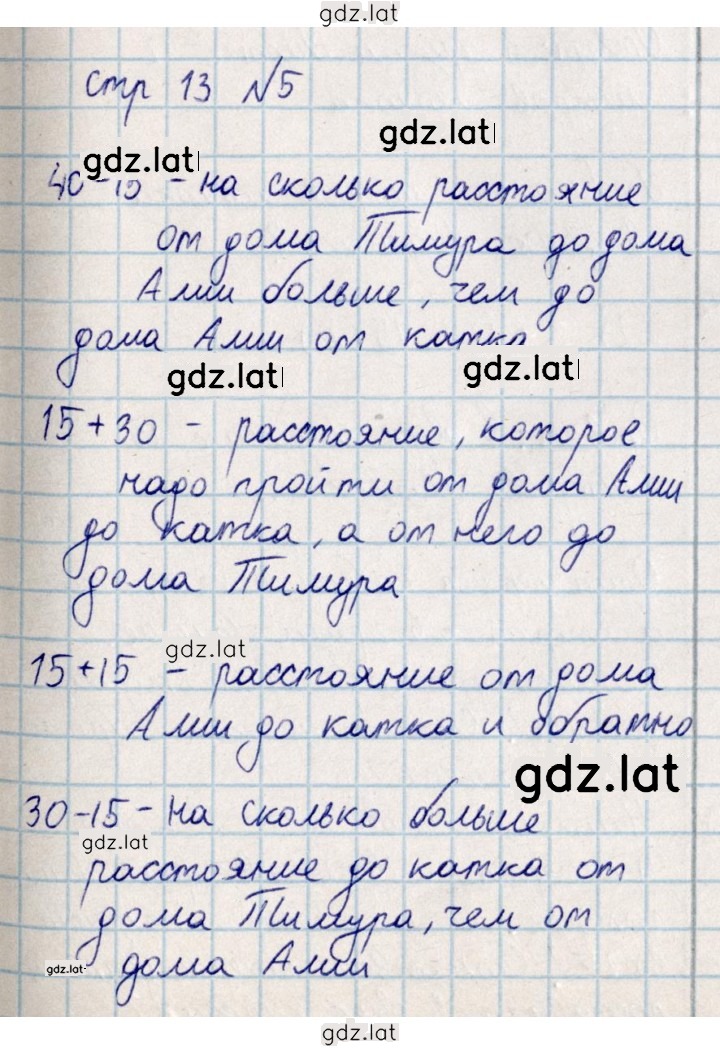 gdz.lat
стр 13 №5
gdz.lat
gdz.lat
40-15 - на сколько расстояние
от дома Тимура до дома
Алии больше, чем до
дома Алии от катка
gdz.lat
gdz.lat
15+30 - расстояние, которое
надо пройти от дома Алии
до катка, а от него до
дома Тимура
gdz.lat
15+15 - расстояние от дома
Алии до катка и обратно
gdz.lat
30-15 - на сколько больше
gdz.lat
расстояние до катка от
дома Тимура, чем от
gdz.lat
дома Алии
gdz.lat